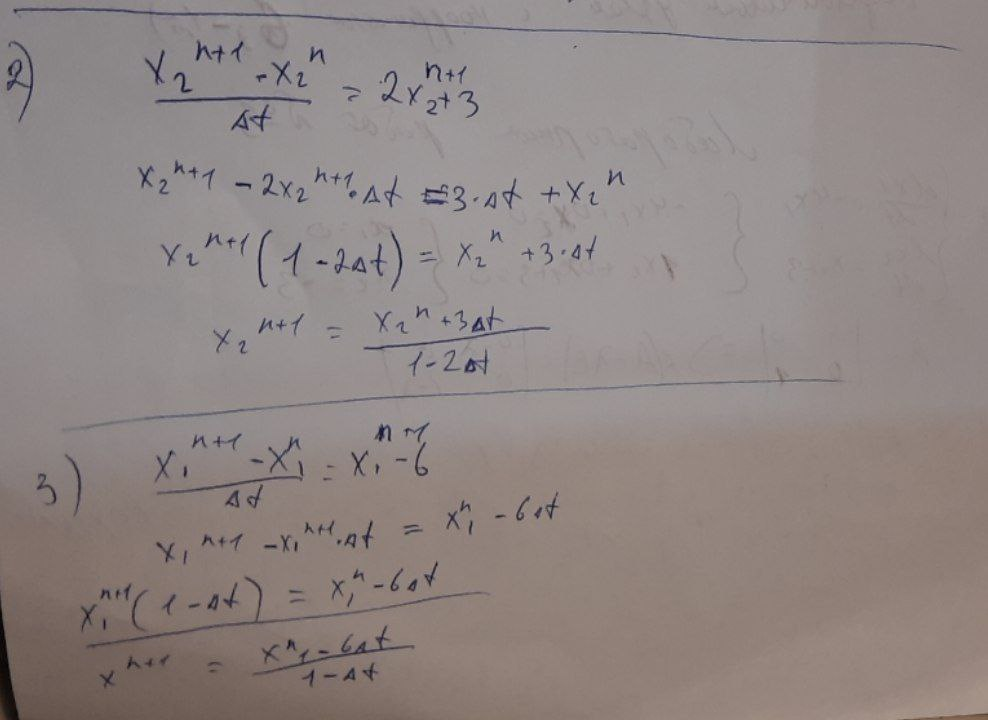 2) x₂ⁿ⁺¹ - x₂ⁿ / Δt = 2x₂ⁿ⁺¹ + 3
x₂ⁿ⁺¹ - 2x₂ⁿ⁺¹ · Δt = 3·Δt + x₂ⁿ
x₂ⁿ⁺¹ (1 - 2Δt) = x₂ⁿ + 3·Δt
x₂ⁿ⁺¹ = x₂ⁿ + 3Δt / 1 - 2Δt
3) x₁ⁿ⁺¹ - x₁ⁿ / Δt = x₁ⁿ⁺¹ - 6
x₁ⁿ⁺¹ - x₁ⁿ⁺¹ · Δt = x₁ⁿ - 6Δt
x₁ⁿ⁺¹ (1 - Δt) = x₁ⁿ - 6Δt
xⁿ⁺¹ = xⁿ₁ - 6Δt / 1 - Δt